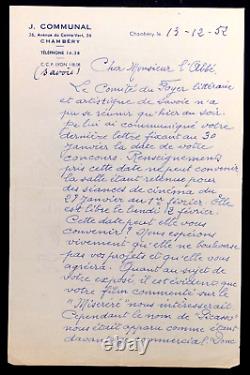 J. COMMUNAL
26, Avenue du Comte-Vert, 26
CHAMBÉRY
TÉLÉPHONE 16.38
C.C.P. LYON
(Savoie)
Chambéry, le 13-12-52
Cher Monsieur l'Abbé,
Le Comité du Foyer littéraire
et artistique de Savoie n'a
pu se réunir qu'hier au soir.
Je lui ai communiqué votre
dernière lettre fixant au 30
janvier la date de votre
concours. Renseignements
pris cette date ne peut convenir
la salle étant retenue pour
des séances de cinéma du
27 janvier au 1er février. Elle
est libre le lundi 2 février.
Cette date peut elle vous
convenir ? Nous espérons
vivement qu'elle ne bouleverse
pas vos projets et qu'elle vous
agréera. Quant au sujet de
votre exposé, il est évident que
votre film commenté sur le
"Miserere" nous intéresserait
Cependant le nom de "Picasso"
nous était apparu comme étant
davantage commercial. Donc